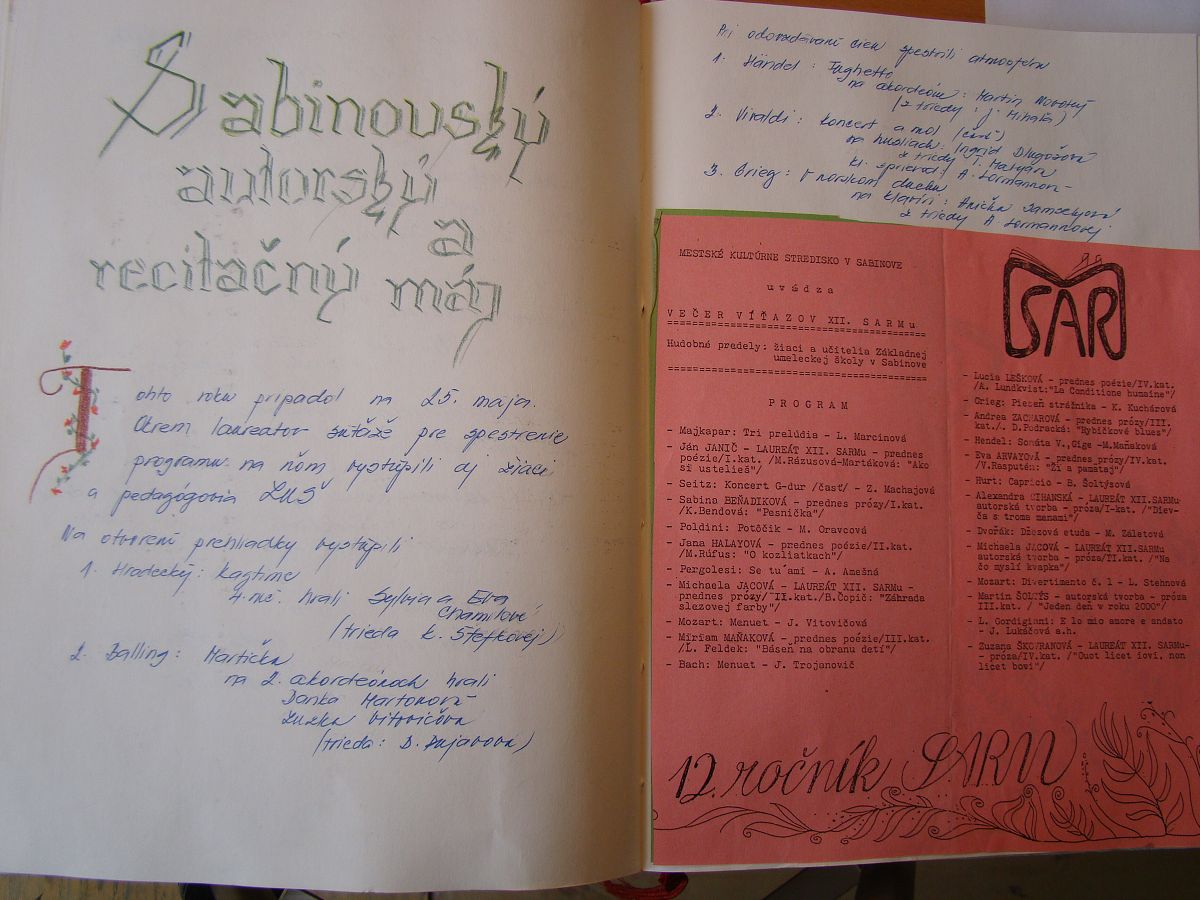 Sabinovský
autorský
a
recitačný máj
Tohto roku pripadol na 25. mája.
Okrem laureátov súťaže pre spestrenie
programu na ňom vystúpili aj žiaci
a pedagógovia ZUŠ
Na otvorení prehliadky vystúpili
1. Hradecký: Ragtime
4. ruč. hrali Sylvia a Eva
Chamilové
(trieda K. Štefkovej)
2. Balling: Martička
na 2. akordeónoch hrali
Danka Martonová
Zuzka Vitovičová
(trieda: D. Dujavová)
Pri odovzdávaní cien spestrili atmosféru
1. Händel: Fughetta
na akordeóne: Martin Novotný
(z triedy J. Mihaľa)
2. Vivaldi: Koncert a mol (časť)
na husliach: Ingrid Dlugošová
z triedy T. Matyáš
kl. sprievod: A. Lormannov-
3. Grieg: V nórskom duchu
na klavíri: Anička Samcelyová
z triedy A. Lormannovej
MESTSKÉ KULTÚRNE STREDISKO V SABINOVE
u v á d z a
V E Č E R V Í Ť A Z O V XII. S A R M u
Hudobné predely: žiaci a učitelia Základnej
umeleckej školy v Sabinove
P R O G R A M
- Majkapar: Tri prelúdia - L. Marcinová
- Ján JANIČ - LAUREÁT XII. SARMu - prednes
poézie/I.kat. /M.Rázusová-Martáková: "Ako
si ustelieš"/
- Seitz: Koncert G-dur /časť/ - Z. Machajová
- Sabina BEŇADIKOVÁ - prednes prózy/I.kat.
/K.Bendová: "Pesnička"/
- Poldini: Potôčik - M. Oravcová
- Jana HALAYOVÁ - prednes poézie/II.kat.
/M.Rúfus: "O kozliatkach"/
- Pergolesi: Se tu ami - A. Amešná
- Michaela JACOVÁ - LAUREÁT XII. SARMu -
prednes prózy/ II.kat./B.Čopič: "Záhrada
slezovej farby"/
- Mozart: Menuet - J. Vitovičová
- Miriam MAŇAKOVÁ - prednes poézie/III.kat.
/L. Feldek: "Báseň na obranu detí"/
- Bach: Menuet - J. Trojanovič
SAR
- Lucia LEŠKOVÁ - prednes poézie/IV.kat.
/A. Lundkvist:"La Conditione humaine"/
- Grieg: Pieseň strážnika - K. Kuchárová
- Andrea ZACHAROVÁ - prednes prózy/III.
kat./. D.Podracká: "Rybičkové blues"/
- Hendel: Sonáta V.,Gige -M.Maňaková
- Eva ARVAYOVÁ - prednes prózy/IV.kat.
/V.Rasputin: "Ži a pamätaj"/
- Hurt: Capricio - B. Šoltýsová
- Alexandra CIHANSKÁ - LAUREÁT XII.SARMu
autorská tvorba - próza/I-kat. /"Diev-
ča s troma menami"/
- Dvořák: Džezová etuda - M. Záletová
- Michaela JACOVÁ - LAUREÁT XII.SARMu
autorská tvorba - próza/II.kat. /"Na
čo myslí kvapka"/
- Mozart: Divertimento č. 1 - L. Stehnová
- Martin ŠOLTÝS - autorská tvorba - próza
III.kat. / "Jeden deň v roku 2000"/
- L. Gordigianni: E lo mio amore e andato
- J. Lukáčová a.h.
- Zuzana ŠKOVRANOVÁ - LAUREÁT XII. SARMu-
- próza/IV.kat. /"Quot licet iovi, non
licet bovi"/
12. ročník SARM